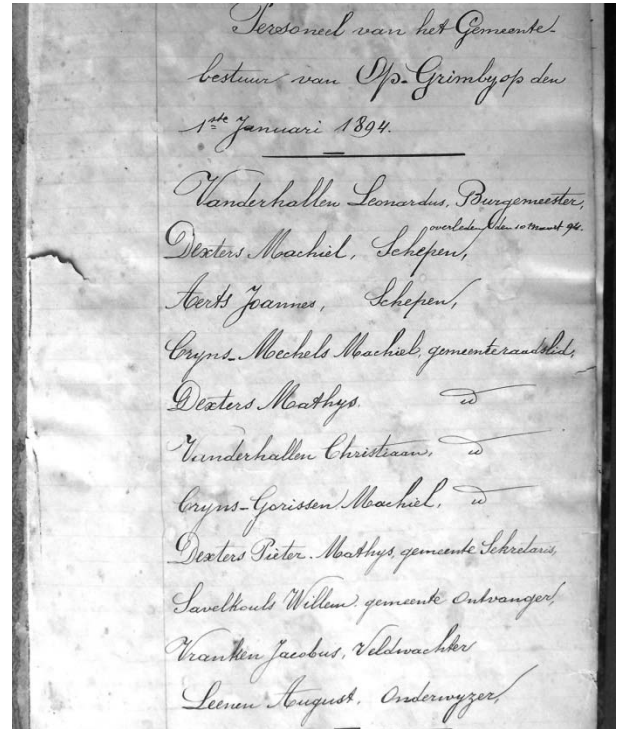 Personeel van het Gemeente-
bestuur van Op-Grimby op den
1ste Januari 1894.
Vanderhallen Leonardus, Burgemeester,
overleden den 10 Maart 94.
Dexters Machiel, Schepen,
Aerts Joannes, Schepen,
Cryns-Mechels Machiel, gemeenteraadslid,
Dexters Mathys. id
Vanderhallen Christiaan, id
Cryns-Gorissen Machiel, id
Dexters Pieter-Mathys, gemeente Sekretaris,
Savelkouls Willem. gemeente Ontvanger,
Vranken Jacobus, Veldwachter
Leenen August. Onderwyzer,